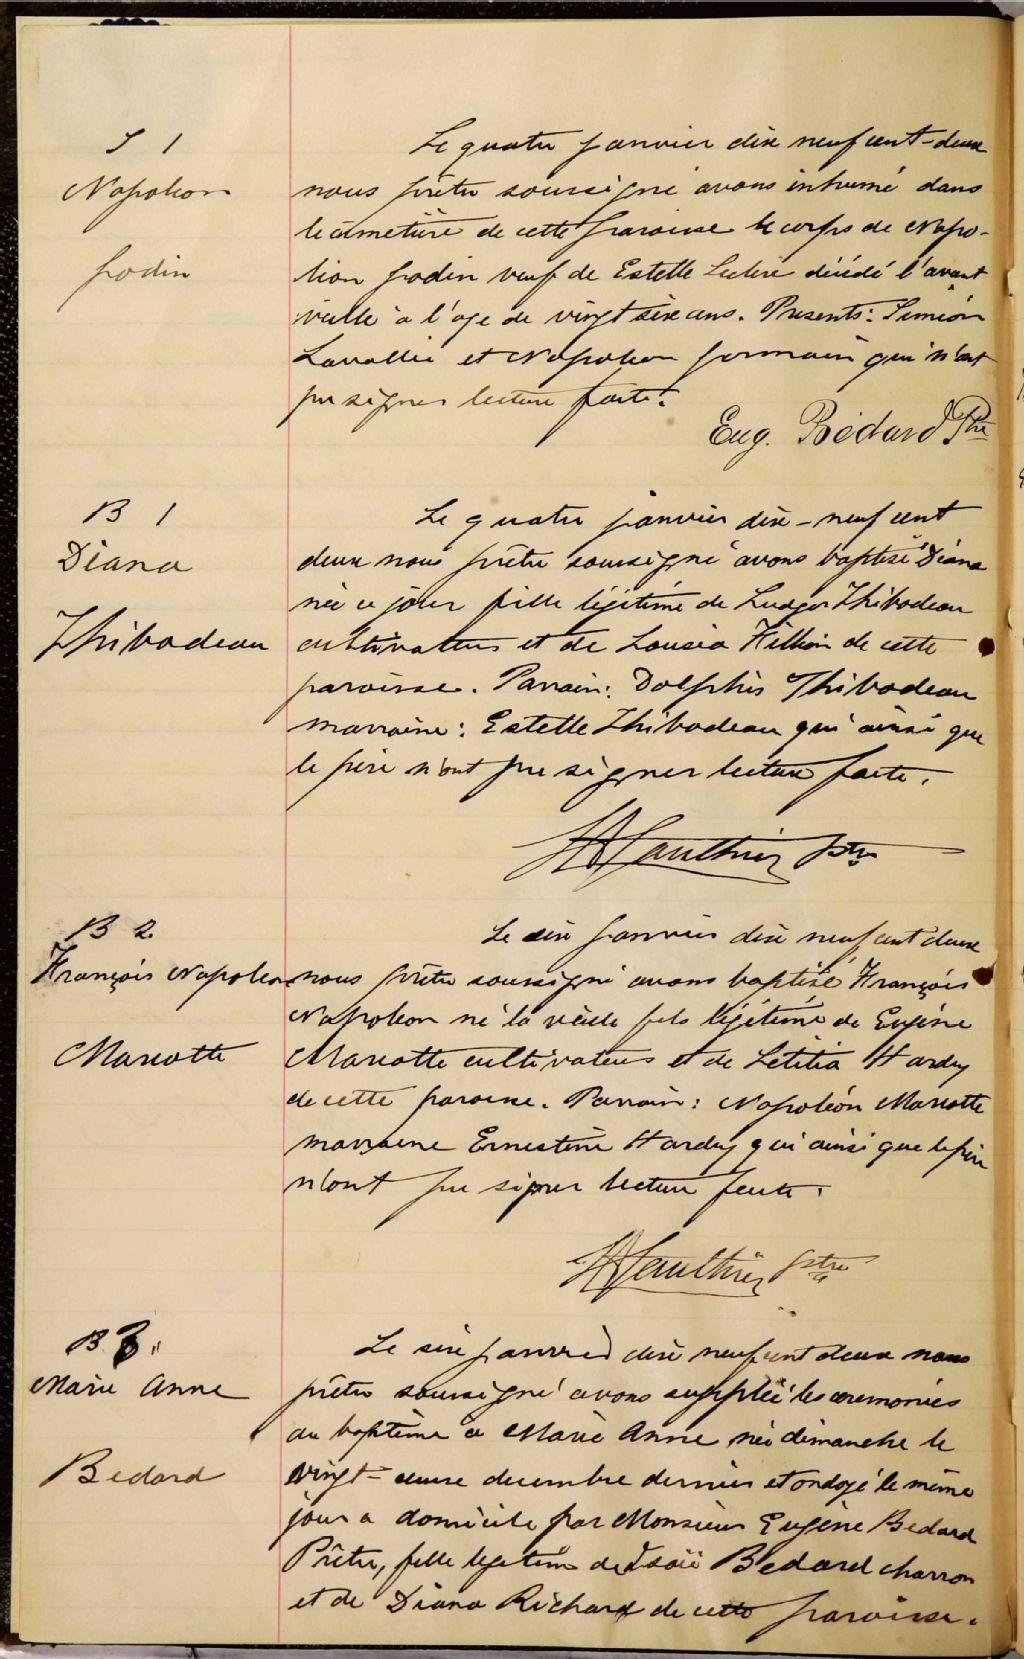 S 1
Napoléon
Godin
Le quatre janvier dix neuf cent-deux
nous prêtre soussigné avons inhumé dans
le cimetière de cette paroisse le corps de Napo-
léon Godin veuf de Estelle Leclerc décédé l'avant
veille à l'age de vingt six ans. Presents: Siméon
Lavallée et Napoléon Germain qui n'ont
pu signer lecture faite.
Eug. Bédard Ptre
B 1
Diana
Thibodeau
Le quatre janvier dix-neuf cent
deux nous prêtre soussigné avons baptisé Diana
née ce jour fille légitime de Ludger Thibodeau
cultivateur et de Lousia de cette
paroisse. Parrain: Dolphis Thibodeau
marraine: Estelle Thibodeau qui ainsi que
le père n'ont pu signer lecture faite.
Gauthier Ptre
B 2
François Napoléon
Marcotte
Le six janvier dix neuf cent deux
nous prêtre soussigné avons baptisé François
Napoléon né la veille fils légitime de Eugène
Marcotte cultivateur et de Letitia Hardy
de cette paroisse. Parrain: Napoléon Marcotte
marraine Ernestine Hardy qui ainsi que le père
n'ont pu signer lecture faite.
Gauthier Ptre
B 3
Marie Anne
Bedard
Le six janvier dix neuf cent deux nous
prêtre soussigné avons suppléé les ceremonies
du baptème à Marie Anne née dimanche le
vingt- decembre dernier et ondoyé le même
jour a domicile par Monsieur Eugène Bedard
Prêtre, fille legitime de Isaïe Bedard charron
et de Diana Richard de cette paroisse.